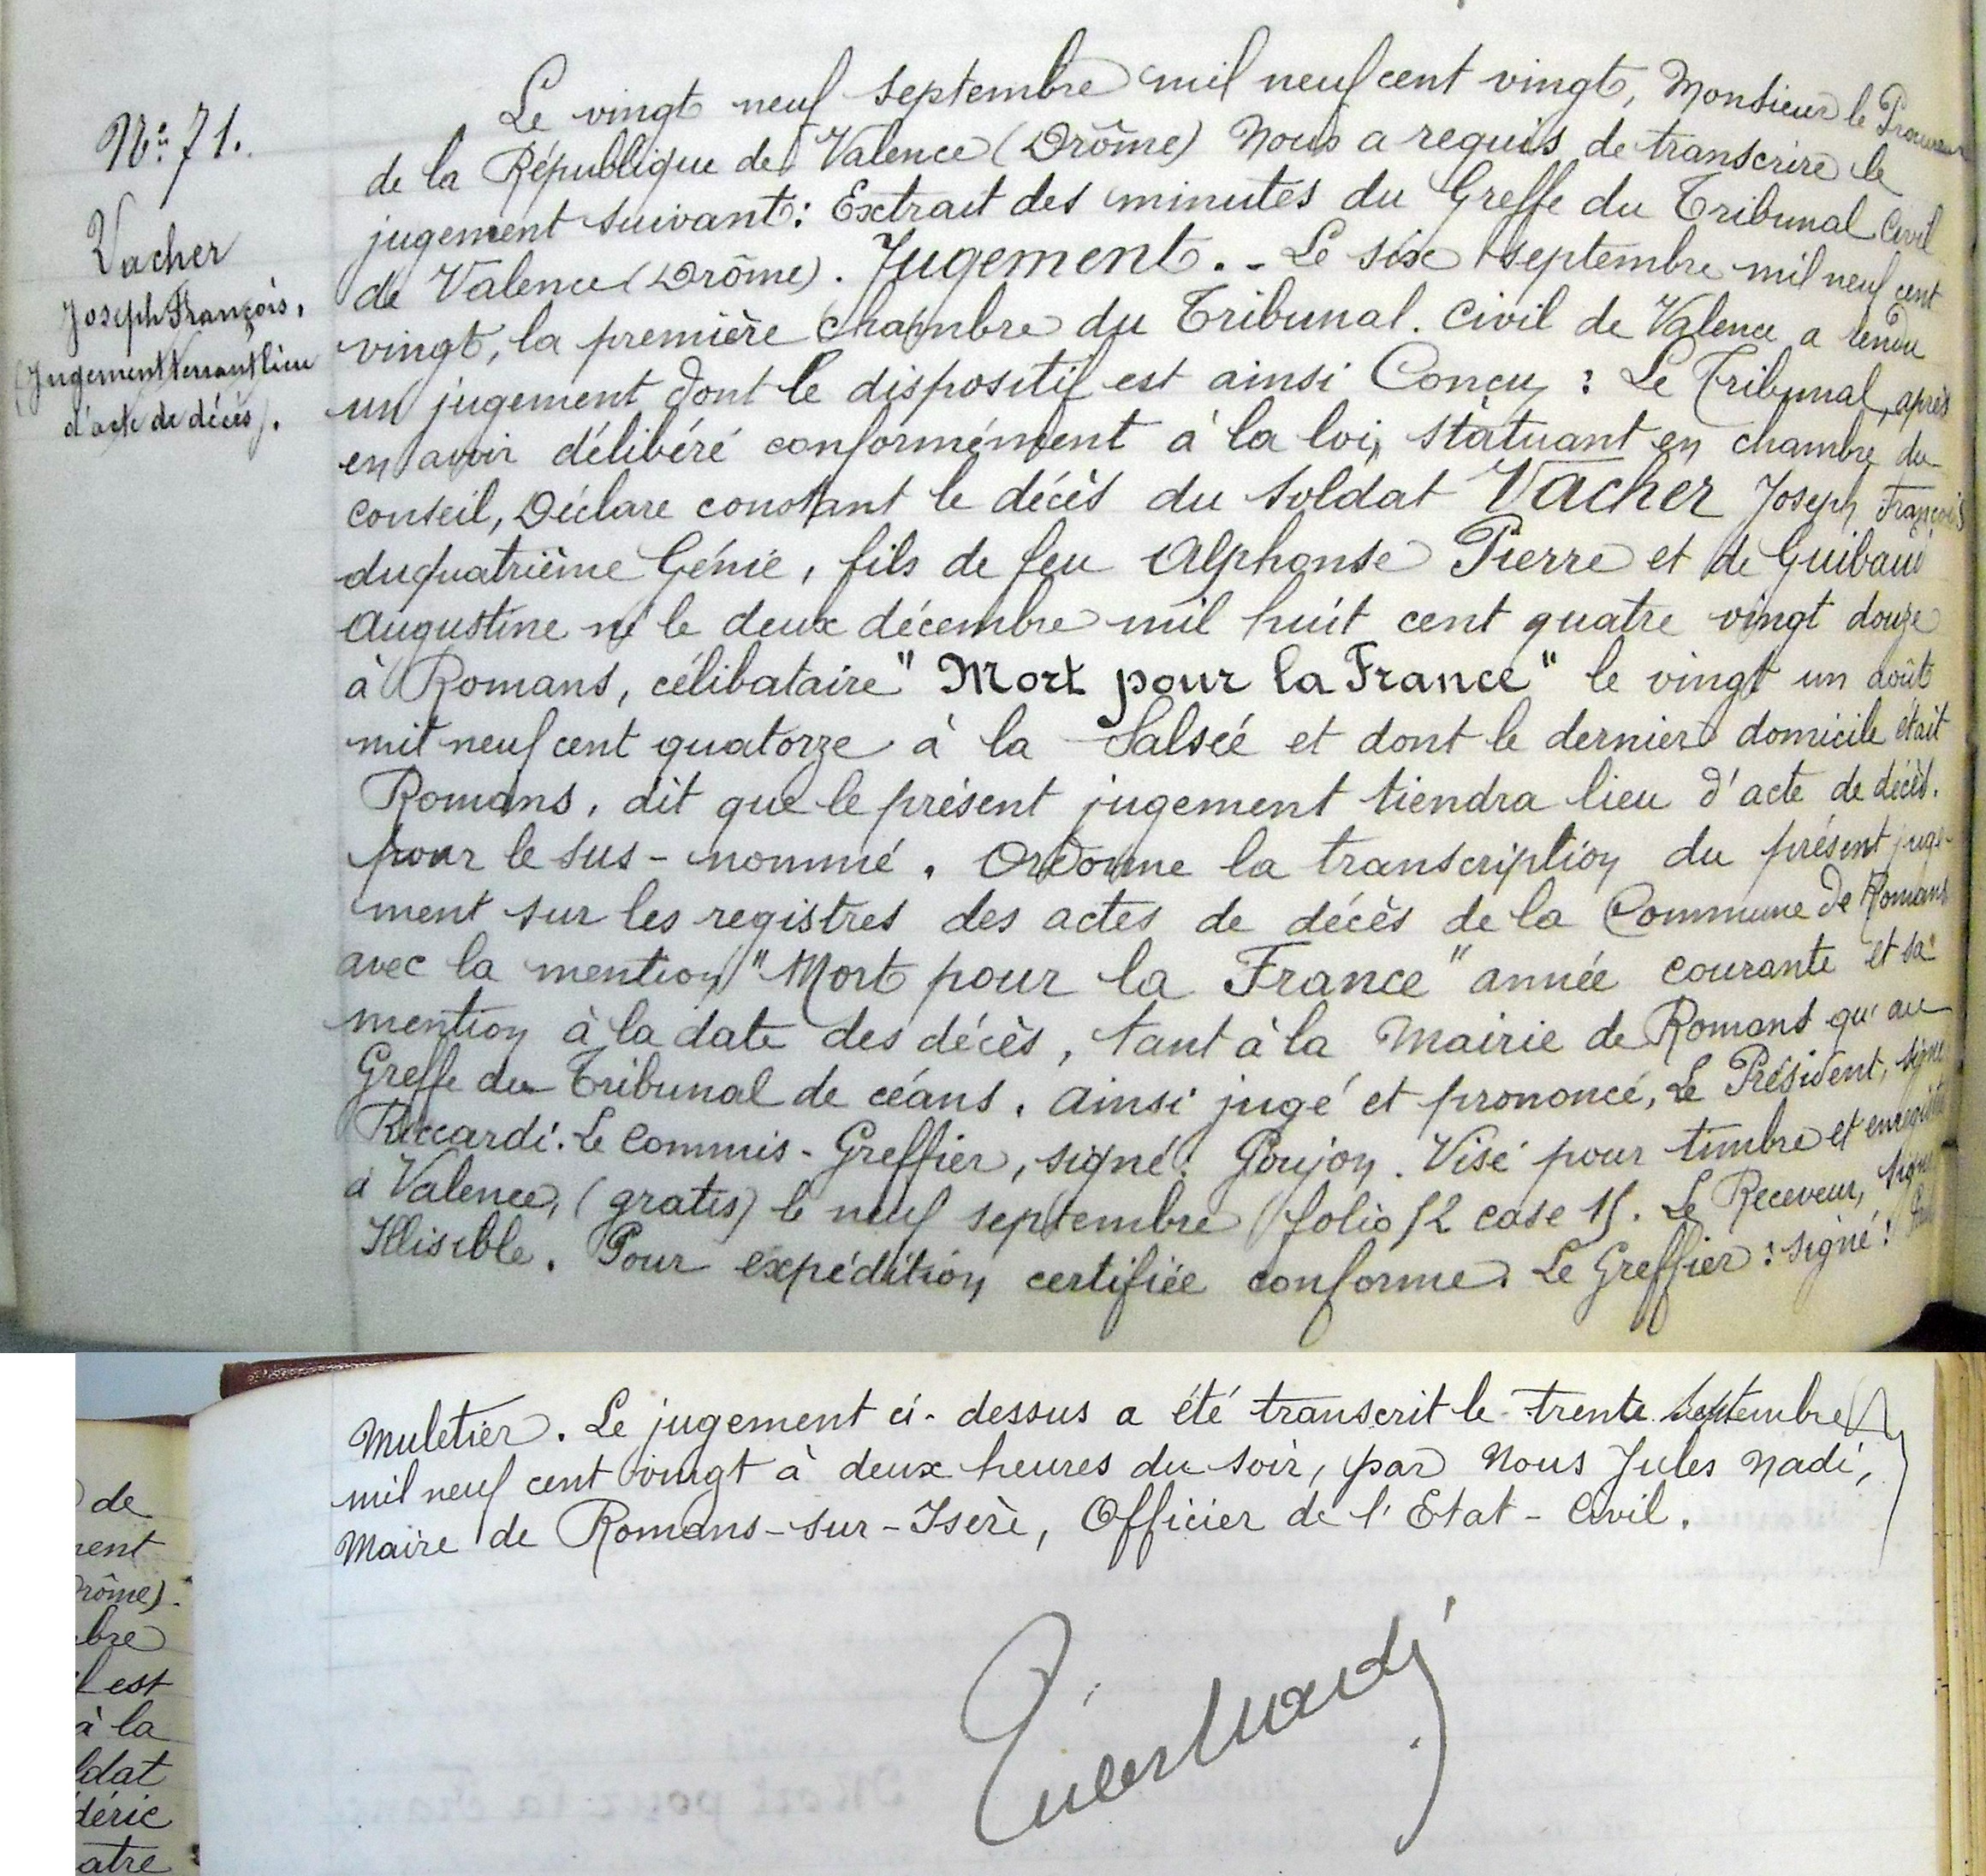 N° 71.
Vacher
Joseph François.
(Jugement tenant lieu
d'acte de décès).
Le vingt neuf septembre mil neuf cent vingt, Monsieur le Procureur
de la République de Valence (Drôme) Nous a requis de transcrire le
jugement suivant : Extrait des minutes du Greffe du Tribunal Civil
de Valence (Drôme). Jugement. - Le six septembre mil neuf cent
vingt, la première chambre du Tribunal. Civil de Valence a rendu
un jugement dont le dispositif est ainsi Concu : Le Tribunal, après
en avoir délibéré conformément à la loi, statuant en chambre du
conseil, Déclare constant le décès du soldat Vacher Joseph François
du quatrième Génie, fils de feu Alphonse Pierre et de Guibaud
Augustine né le deux décembre mil huit cent quatre vingt douze
à Romans, célibataire "Mort pour la France" le vingt un août
mil neuf cent quatorze à la Salsée et dont le dernier domicile était
Romans, dit que le présent jugement tiendra lieu d'acte de décès.
pour le sus-nommé. Ordonne la transcription du présent juge-
ment sur les registres des actes de décès de la Commune de Romans
avec la mention "Mort pour la France" année courante et sa
mention à la date des décès, tant à la Mairie de Romans qu'au
Greffe du Tribunal de céans. Ainsi jugé et prononcé, Le Président, signé
Riccardi. Le Commis-Greffier, signé: Goujon. Visé pour timbre et enregistré
à Valence, (gratis) le neuf septembre folio 52 case 15. Le Receveur, signé
Illisible. Pour expédition certifiée conforme. Le Greffier : signé :
Muletier. Le jugement ci-dessus a été transcrit le trente septembre
mil neuf cent vingt à deux heures du soir, par Nous Jules Nadi,
Maire de Romans-sur-Isère, Officier de l'Etat-Civil.
Jules Nadi
de
nent
rôme).
bre
l est
à la
ldat
déric
atre